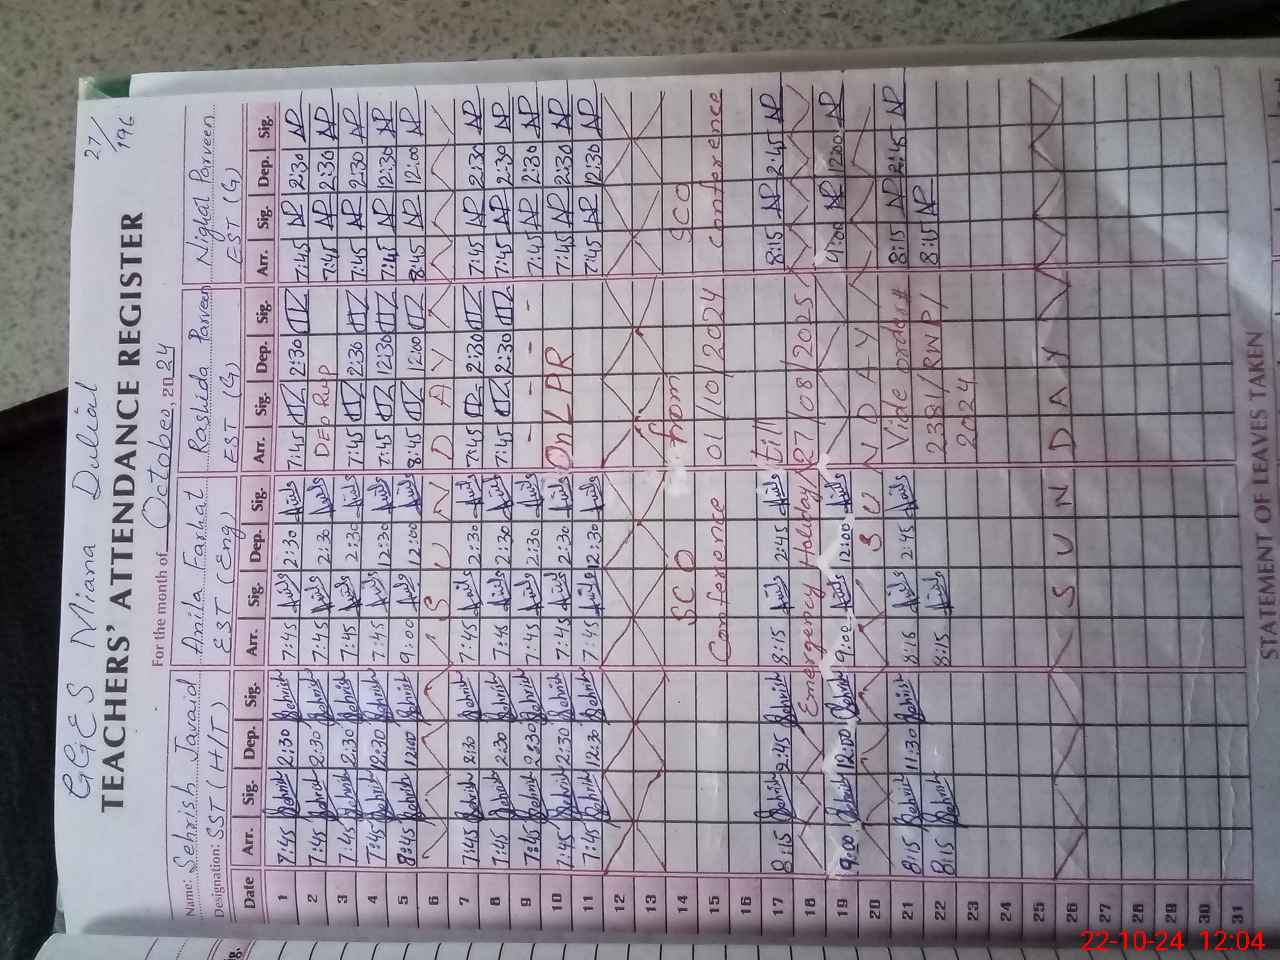 27/
196
GGES Miana Dulial
TEACHERS' ATTENDANCE REGISTER
For the month of October, 2024
Name: Sehrish Javaid Anila Farhat Rashida Parveen Nighat Parveen
Designation: SST (H/T) EST (Eng) EST (G) EST (G)
Date Arr. Sig. Dep. Sig. Arr. Sig. Dep. Sig. Arr. Sig. Dep. Sig. Arr. Sig. Dep. Sig.
1 7:45 Sehrish 2:30 Sehrish 7:45 2:30 7:45 2:30 7:45 NP 2:30 NP
2 7:45 Sehrish 2:30 Sehrish 7:45 2:30 DEO RWP 7:45 NP 2:30 NP
3 7:45 Sehrish 2:30 Sehrish 7:45 2:30 7:45 2:30 7:45 NP 2:30 NP
4 7:45 Sehrish 12:30 Sehrish 7:45 12:30 7:45 12:30 7:45 NP 12:30 NP
5 8:45 Sehrish 12:00 Sehrish 9:00 12:00 8:45 12:00 8:45 NP 12:00 NP
6 S U N D A Y
7 7:45 Sehrish 2:30 Sehrish 7:45 2:30 7:45 2:30 7:45 NP 2:30 NP
8 7:45 Sehrish 2:30 Sehrish 7:45 2:30 7:45 2:30 7:45 NP 2:30 NP
9 7:45 Sehrish 2:30 Sehrish 7:45 2:30 - - - - 7:45 NP 2:30 NP
10 7:45 Sehrish 2:30 Sehrish 7:45 2:30 On LPR 7:45 NP 2:30 NP
11 7:45 Sehrish 12:30 Sehrish 7:45 12:30 7:45 NP 12:30 NP
12
13
14 SCO from SCO
15 Conference 01/10/2024 Conference
16
17 8:15 Sehrish 2:45 Sehrish 8:15 2:45 till 8:15 NP 2:45 NP
18 Emergency Holiday 27/08/2025
19 9:00 Sehrish 12:00 Sehrish 9:00 12:00 9:00 NP 12:00 NP
20 S U N D A Y
21 8:15 Sehrish 11:30 Sehrish 8:15 2:45 Vide order# 8:15 NP 2:45 NP
22 8:15 Sehrish 8:15 2381/RWP/ 8:15 NP
23 2024
24
25
26 S U N D A Y
27
28
29
30
31
STATEMENT OF LEAVES TAKEN
Sig.
22-10-24 12:04